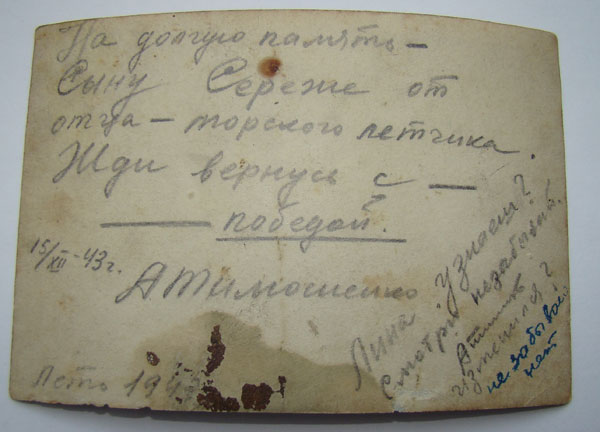 На долгую память —
Сыну Сереже от
отца — морского летчика.
Жди вернусь с —
— победой.
15/XII - 43 г.
А Тимошенко
Лето 194
Лина узнаеш?
Смотри незабывай.
изменился?
не забывай
нет